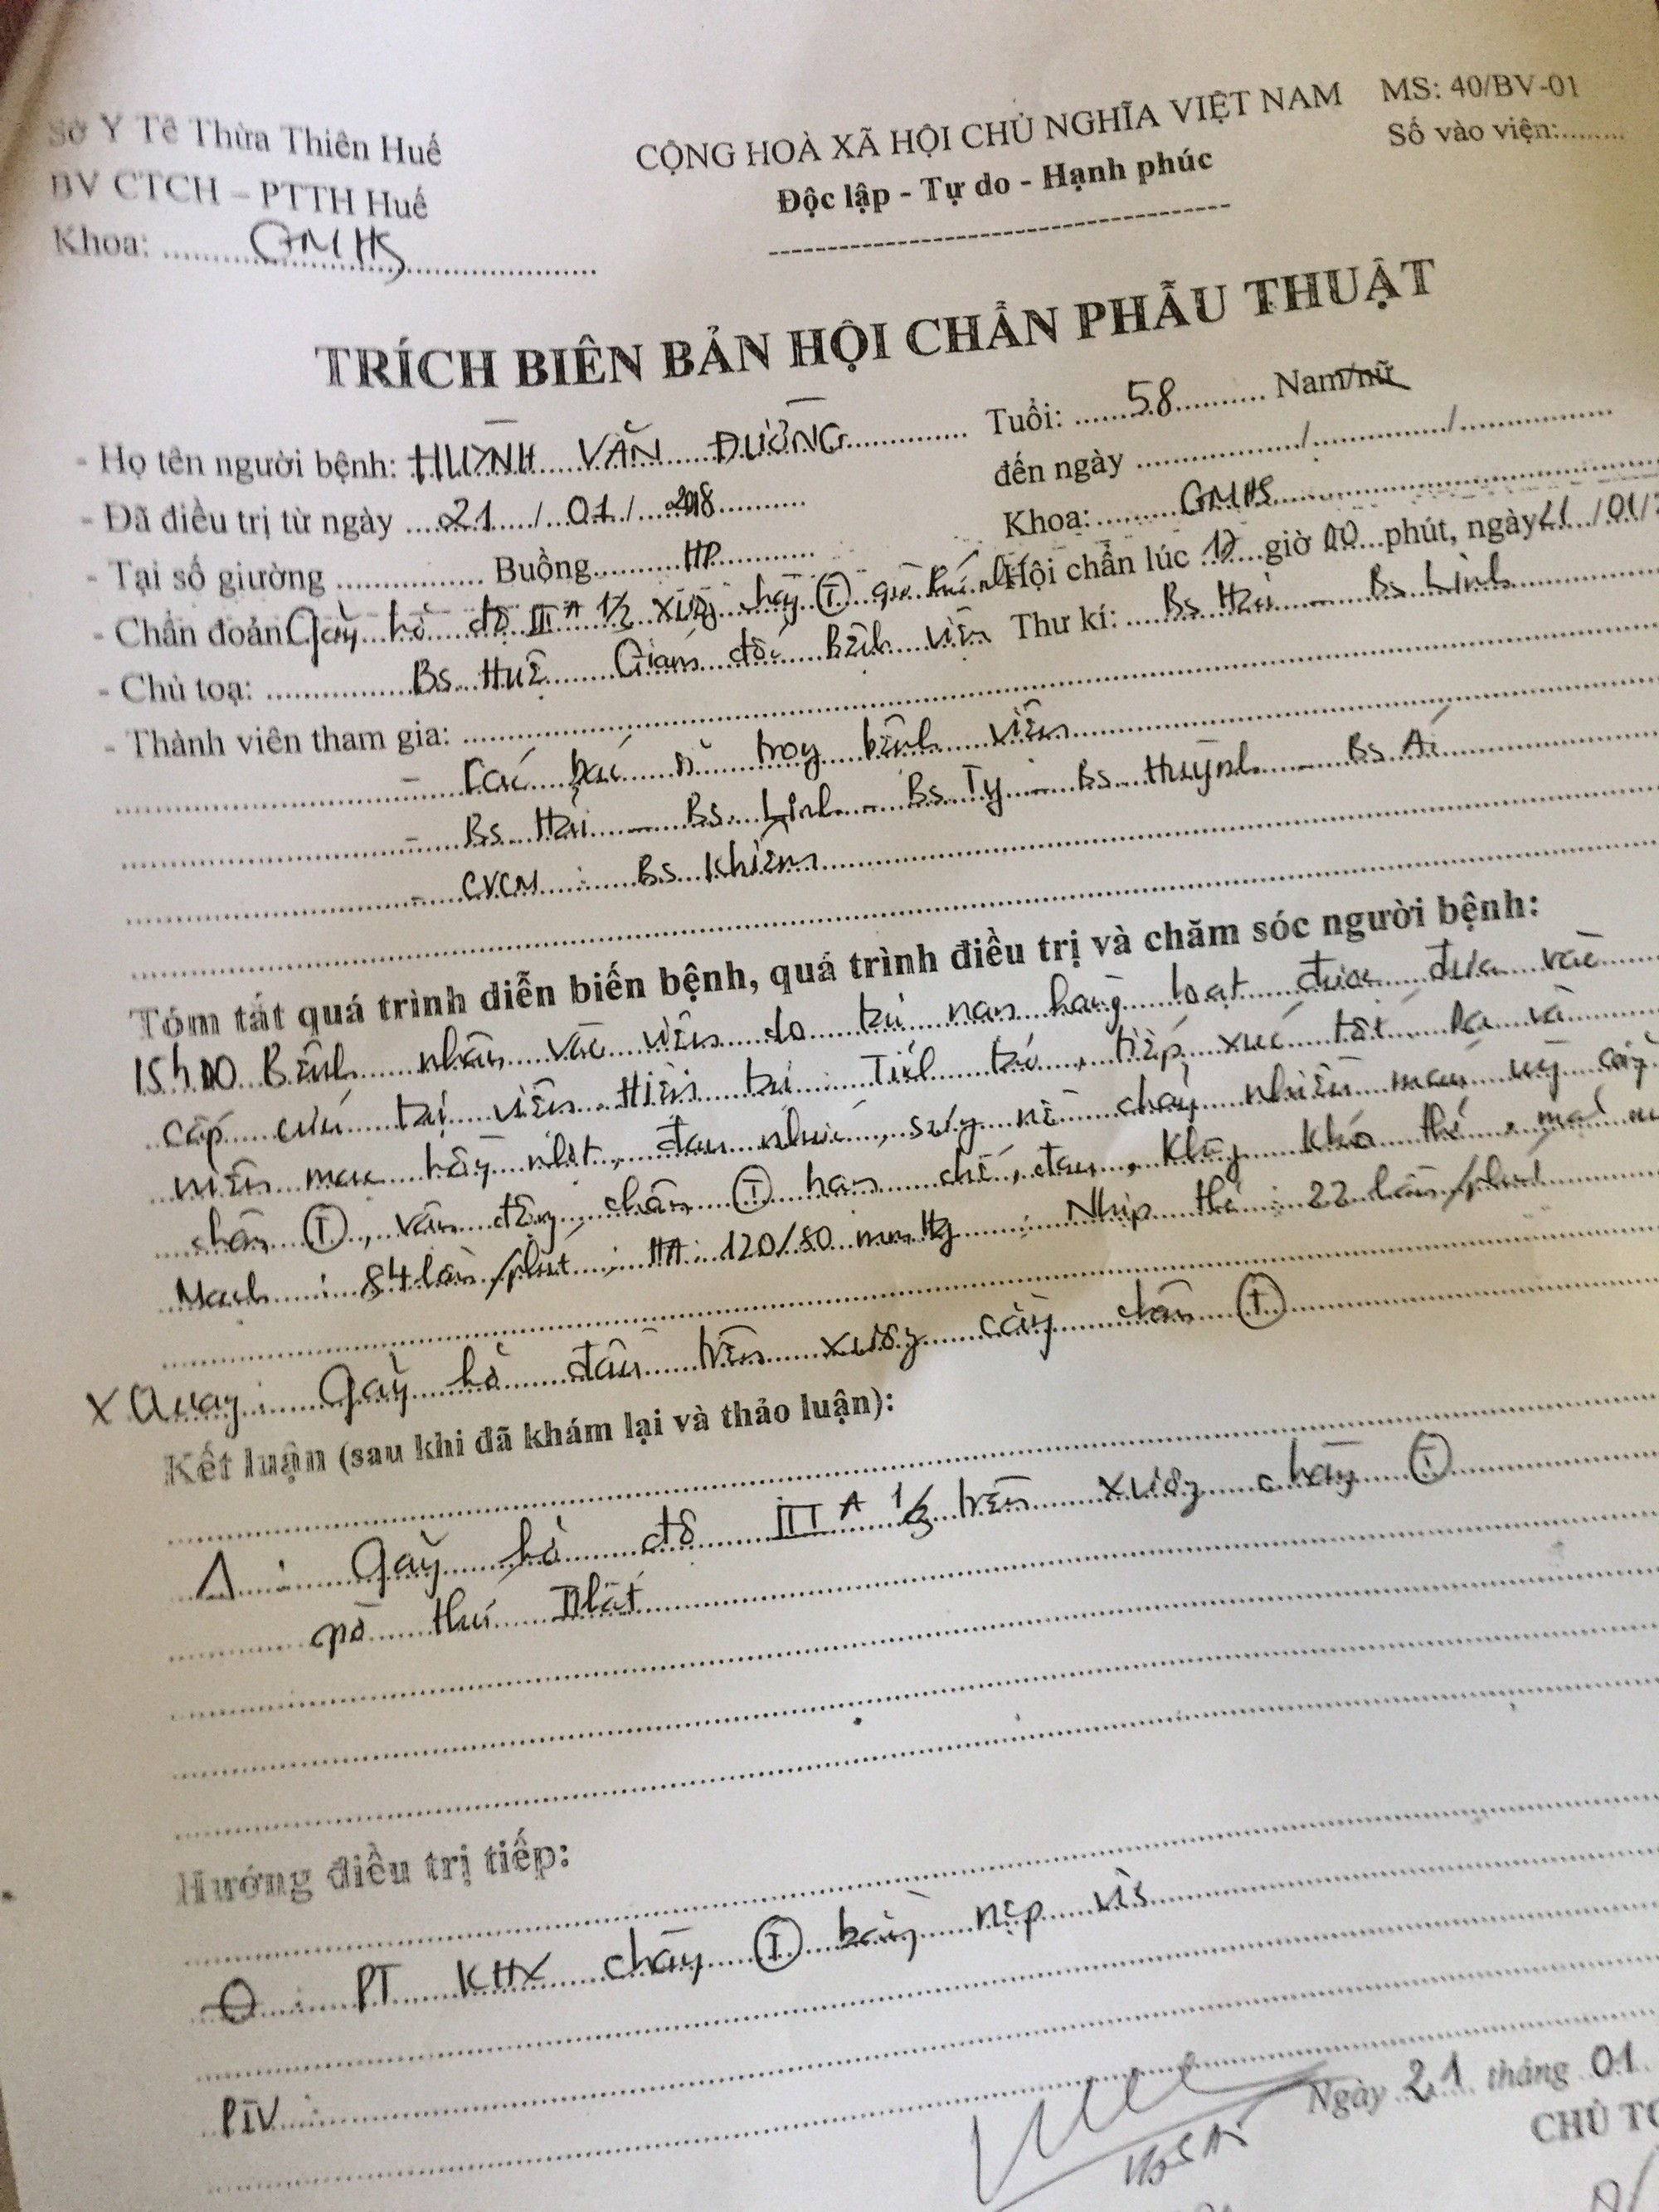 Sở Y Tế Thừa Thiên Huế
BV CTCH – PTTH Huế
Khoa: GMHS
CỘNG HOÀ XÃ HỘI CHỦ NGHĨA VIỆT NAM
Độc lập - Tự do - Hạnh phúc
MS: 40/BV-01
Số vào viện:........
TRÍCH BIÊN BẢN HỘI CHẨN PHẪU THUẬT
- Họ tên người bệnh: HUỲNH VĂN ĐƯỜNG Tuổi: 58 Nam/nữ
- Đã điều trị từ ngày 21 / 01 / 2018 đến ngày ......../......../........
- Tại số giường ........ Buồng HP Khoa: GMHS
- Chẩn đoán Gãy hở độ III A 1/3 xương chày (T) giờ Hội chẩn lúc 17 giờ 00 phút, ngày 21 /01/
- Chủ toạ: Bs Huệ Giám đốc Bệnh viện Thư kí: Bs Hải – Bs Linh
- Thành viên tham gia:
- Các bác sĩ trong bệnh viện
- Bs Hải – Bs Linh – Bs Tý – Bs Huỳnh – Bs Ái
- CVCM : Bs Khiêm
Tóm tắt quá trình diễn biến bệnh, quá trình điều trị và chăm sóc người bệnh:
15h00 Bệnh nhân vào viện do tai nạn hàng loạt được đưa vào
cấp cứu tại viện. Hiện tại : Tỉnh táo, tiếp xúc tốt, da và
niêm mạc hồng nhạt, đau nhức, sưng nề chảy nhiều máu vùng cẳng
chân (T), vận động chân (T) hạn chế, đau, không khó thở,
Mạch : 84 lần/phút ; HA: 120/80 mmHg ; Nhịp thở : 22 lần/phút
X Quang : Gãy hở đầu trên xương cẳng chân (T)
Kết luận (sau khi đã khám lại và thảo luận):
Δ : Gãy hở độ III A 1/3 trên xương chày (T)
giờ thứ Nhất
Hướng điều trị tiếp:
Θ : PT KHX chày (T) bằng nẹp vis
PTV :
Ngày 21 tháng 01
CHỦ TO